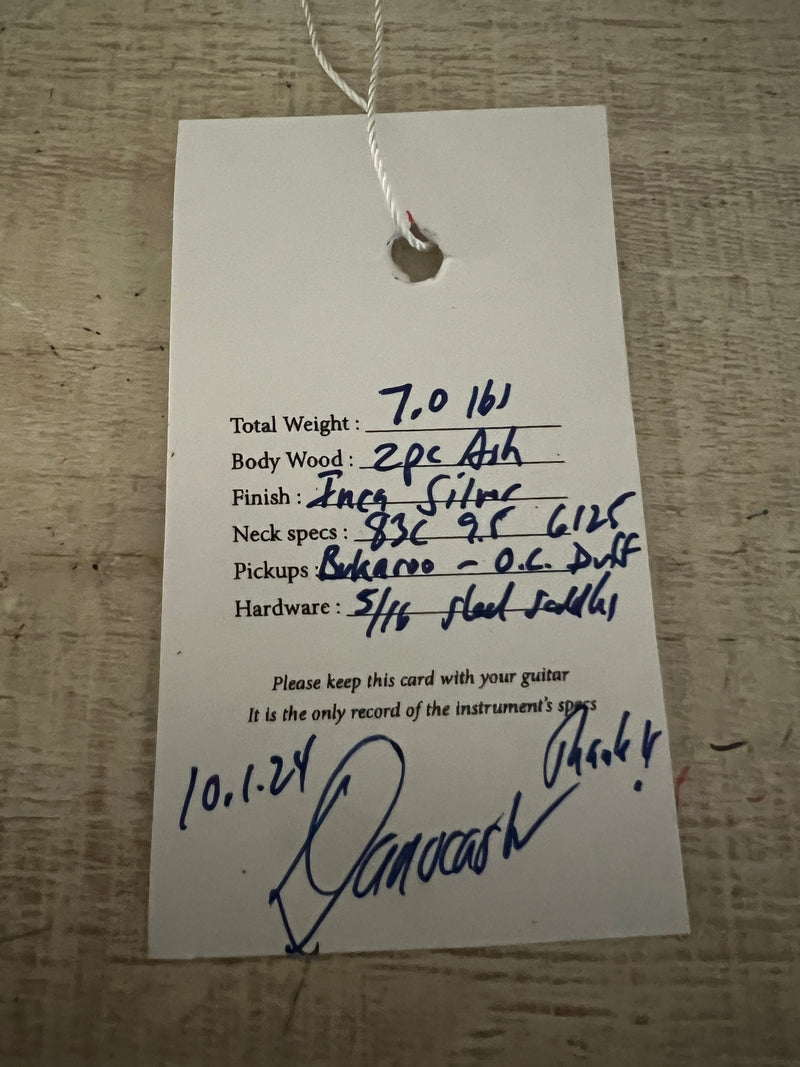 Total Weight : 7.0 lbs
Body Wood : 2pc Ash
Finish : Inca Silver
Neck specs : 83C 9.5 6125
Pickups : Bukaroo - O.C. Duff
Hardware : 5/16 steel saddles
Please keep this card with your guitar
It is the only record of the instrument's specs
Thanks!
10.1.24
Danocaster